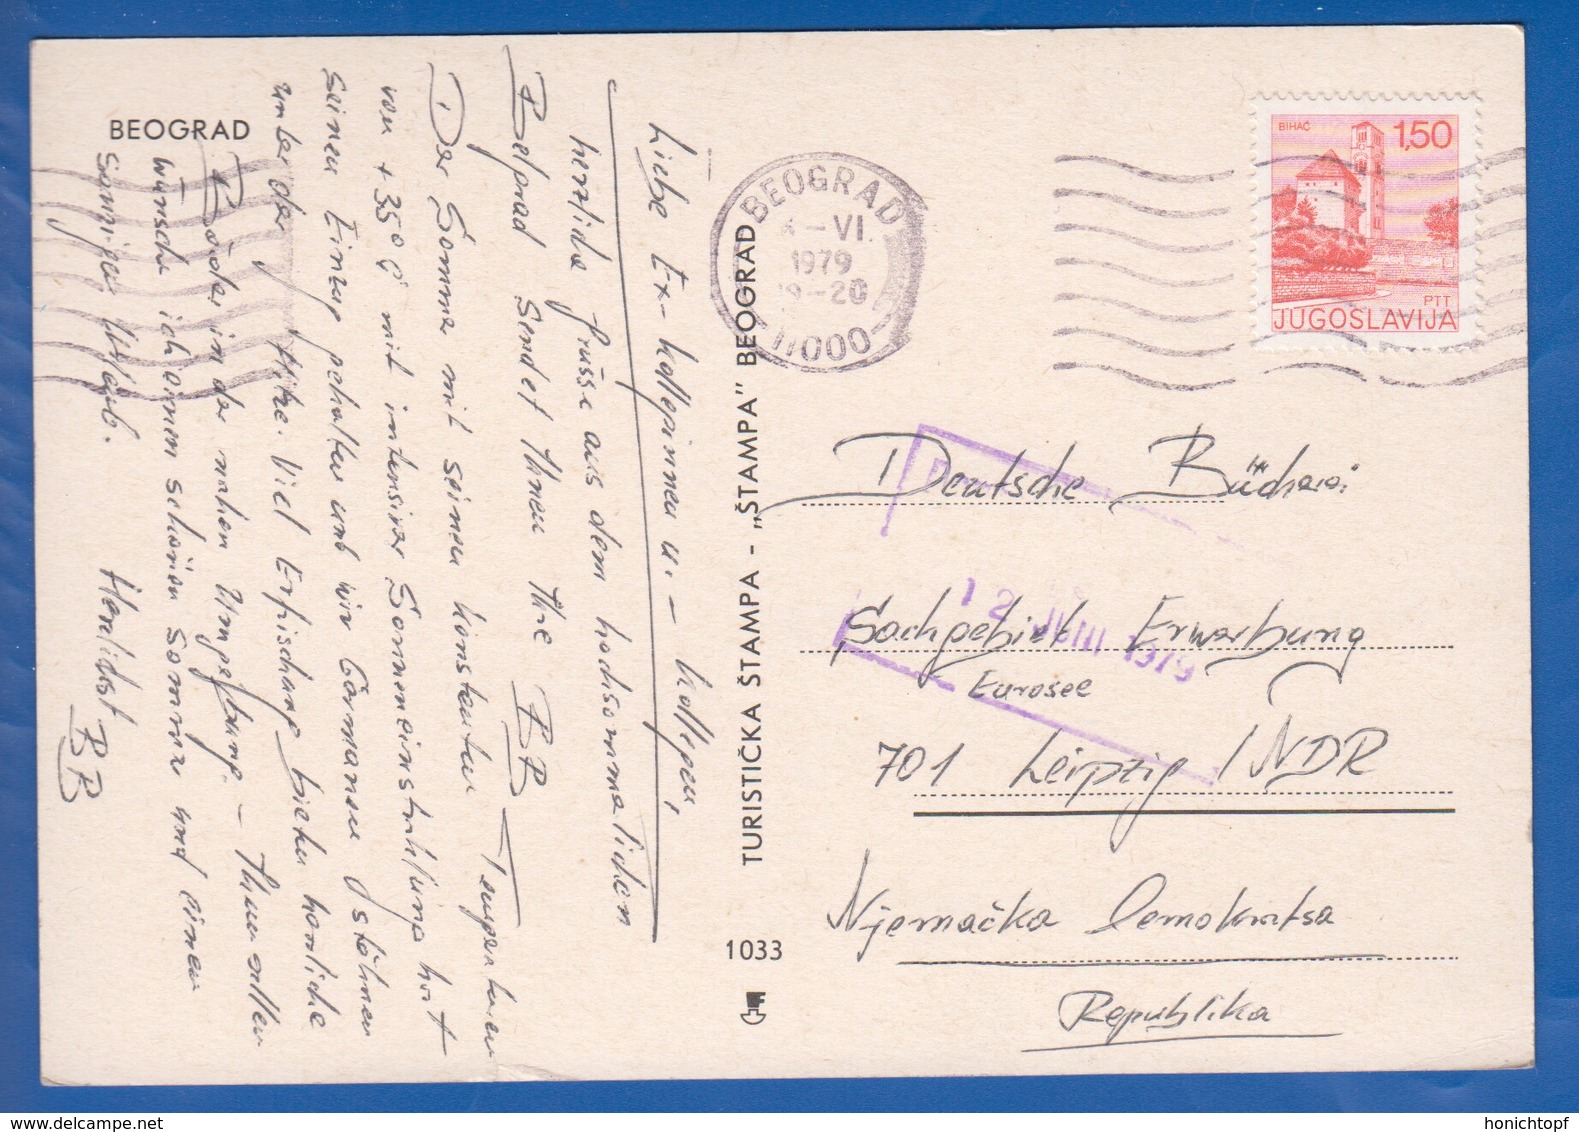 BEOGRAD
Liebe Ex-Kolleginnen u.-Kollegen,
herzliche Grüsse aus dem hochsommerlichen
Belgrad sendet Ihnen Ihre BB
Der Sommer mit seinen konstanten Temperaturen
von +35°C mit intensiver Sonneneinstrahlung hat
seinen Einzug gehalten und wir Germanen stöhnen
unter der Hitze. Viel Erfrischung bieten herrliche
Bäder in der nahen Umgebung. – Ihnen allen
wünsche ich einen schönen Sommer und einen
sonnigen Urlaub.
Herzlichst
BB
TURISTIČKA ŠTAMPA - „ŠTAMPA" BEOGRAD
1033
BEOGRAD
-VI.
1979
-20
11000
BIHAĆ
1,50
PTT
JUGOSLAVIJA
12 1979
Deutsche Bücherei
Sachgebiet Erwerbung
Eurosee
701 Leipzig / NDR
Njemačka Demokratska
Republika
honichtopf